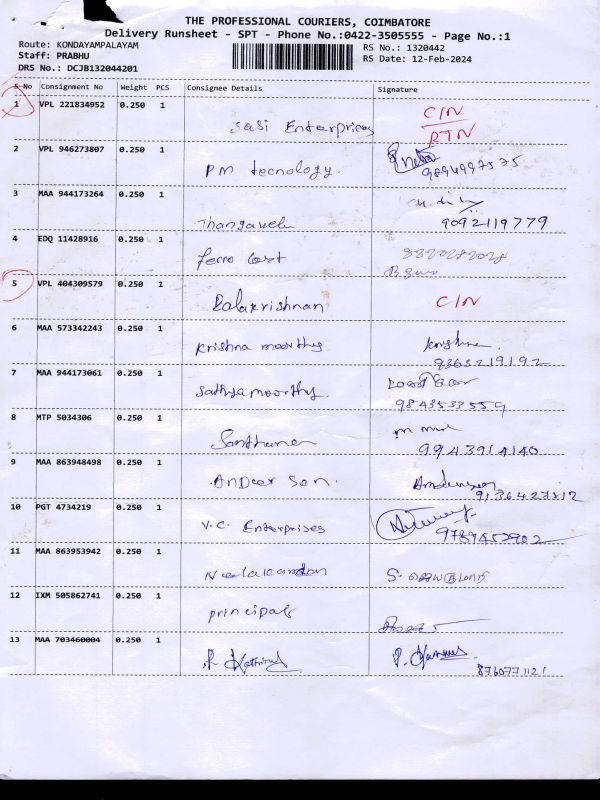 THE PROFESSIONAL COURIERS, COIMBATORE
Delivery Runsheet - SPT - Phone No.:0422-3505555 - Page No.:1
Route: KONDAYAMPALAYAM
Staff: PRABHU
DRS No.: DCJB132044201
RS No.: 1320442
RS Date: 12-Feb-2024
S No Consignment No Weight PCS Consignee Details Signature
1 VPL 221834952 0.250 1 Sasi Enterprices C/N RTN
2 VPL 946273807 0.250 1 PM tecnology.
3 MAA 944173264 0.250 1 Thangavelu 9092119779
4 EDQ 11428916 0.250 1 ferro cast
5 VPL 404309579 0.250 1 Balakrishnan C/N
6 MAA 573342243 0.250 1 Krishna moorthy 9363219192
7 MAA 944173061 0.250 1 Sathyamoorthy. 9843533559
8 MTP 5034306 0.250 1 9943914140
9 MAA 863948498 0.250 1 Andear Son.
10 PGT 4734219 0.250 1 V.C. Enterprises 9789452902
11 MAA 863953942 0.250 1 Neelakandan S. ஜெயகுமார்
12 IXM 505862741 0.250 1 principals
13 MAA 703460004 0.250 1